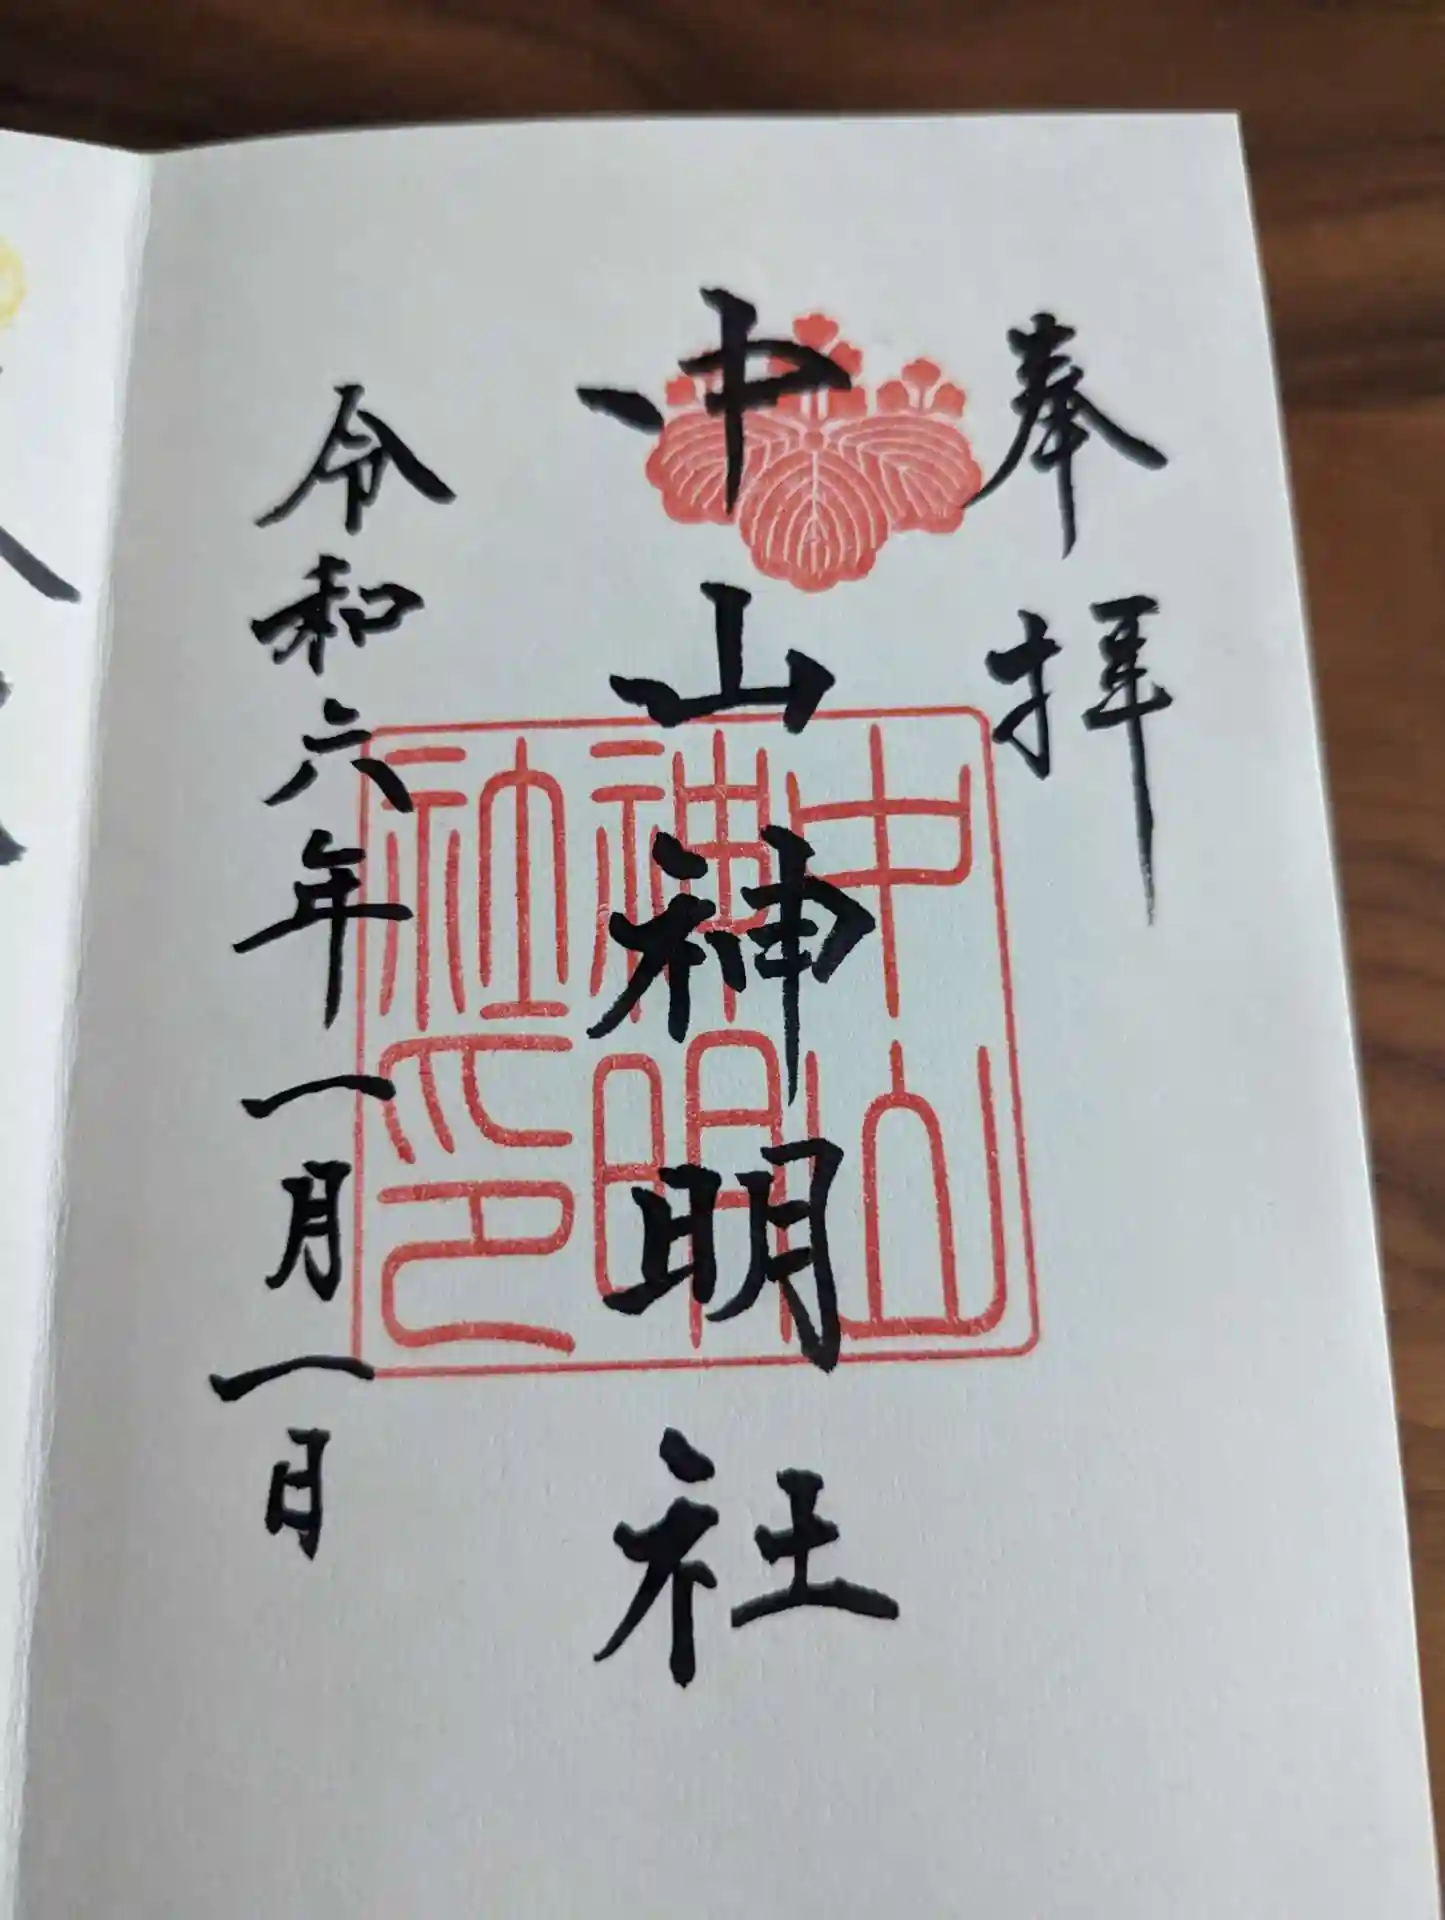 奉拝
中山神明社
中山
神明
社印
令和六年一月一日